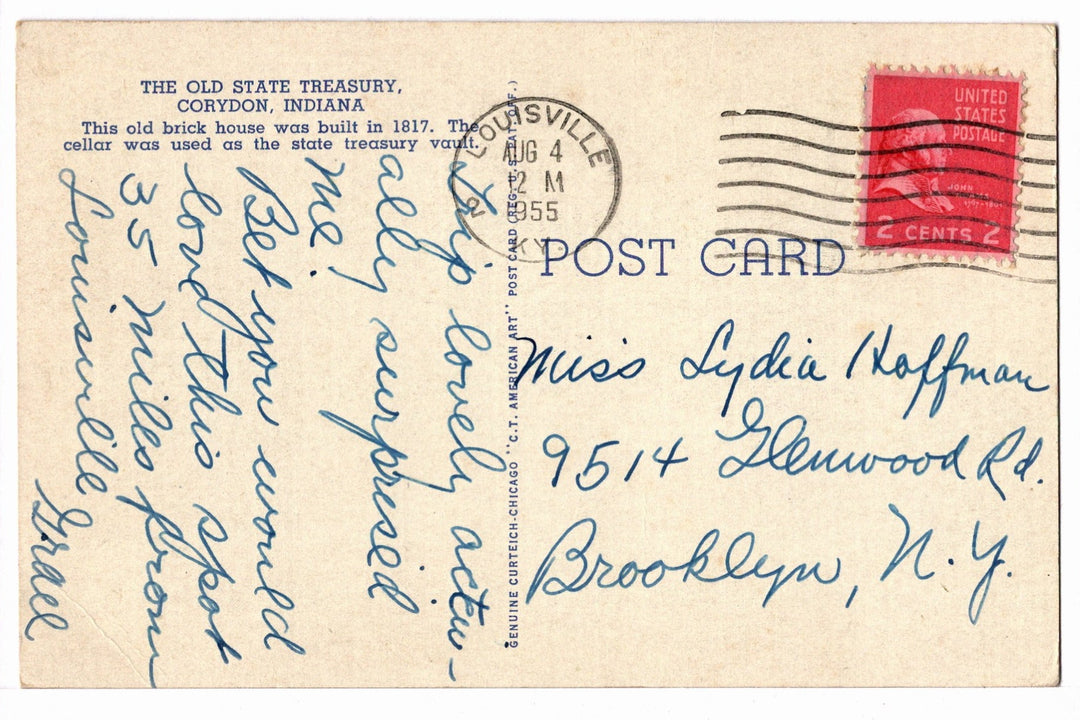 THE OLD STATE TREASURY,
CORYDON, INDIANA
This old brick house was built in 1817. The
cellar was used as the state treasury vault.
Trip lovely actu-
ally surpresed
me.
Bet you would
lovd this spot
35 miles from
Louisville
Grace
GENUINE CURTEICH-CHICAGO "C.T. AMERICAN ART" POST CARD (REG. U. S. PAT. OFF.)
LOUISVILLE
AUG 4
12 M
1955
KY.
2
UNITED
STATES
POSTAGE
JOHN
2 CENTS 2
POST CARD
Miss Lydia Hoffman
9514 Glenwood Rd.
Brooklyn, N.Y.